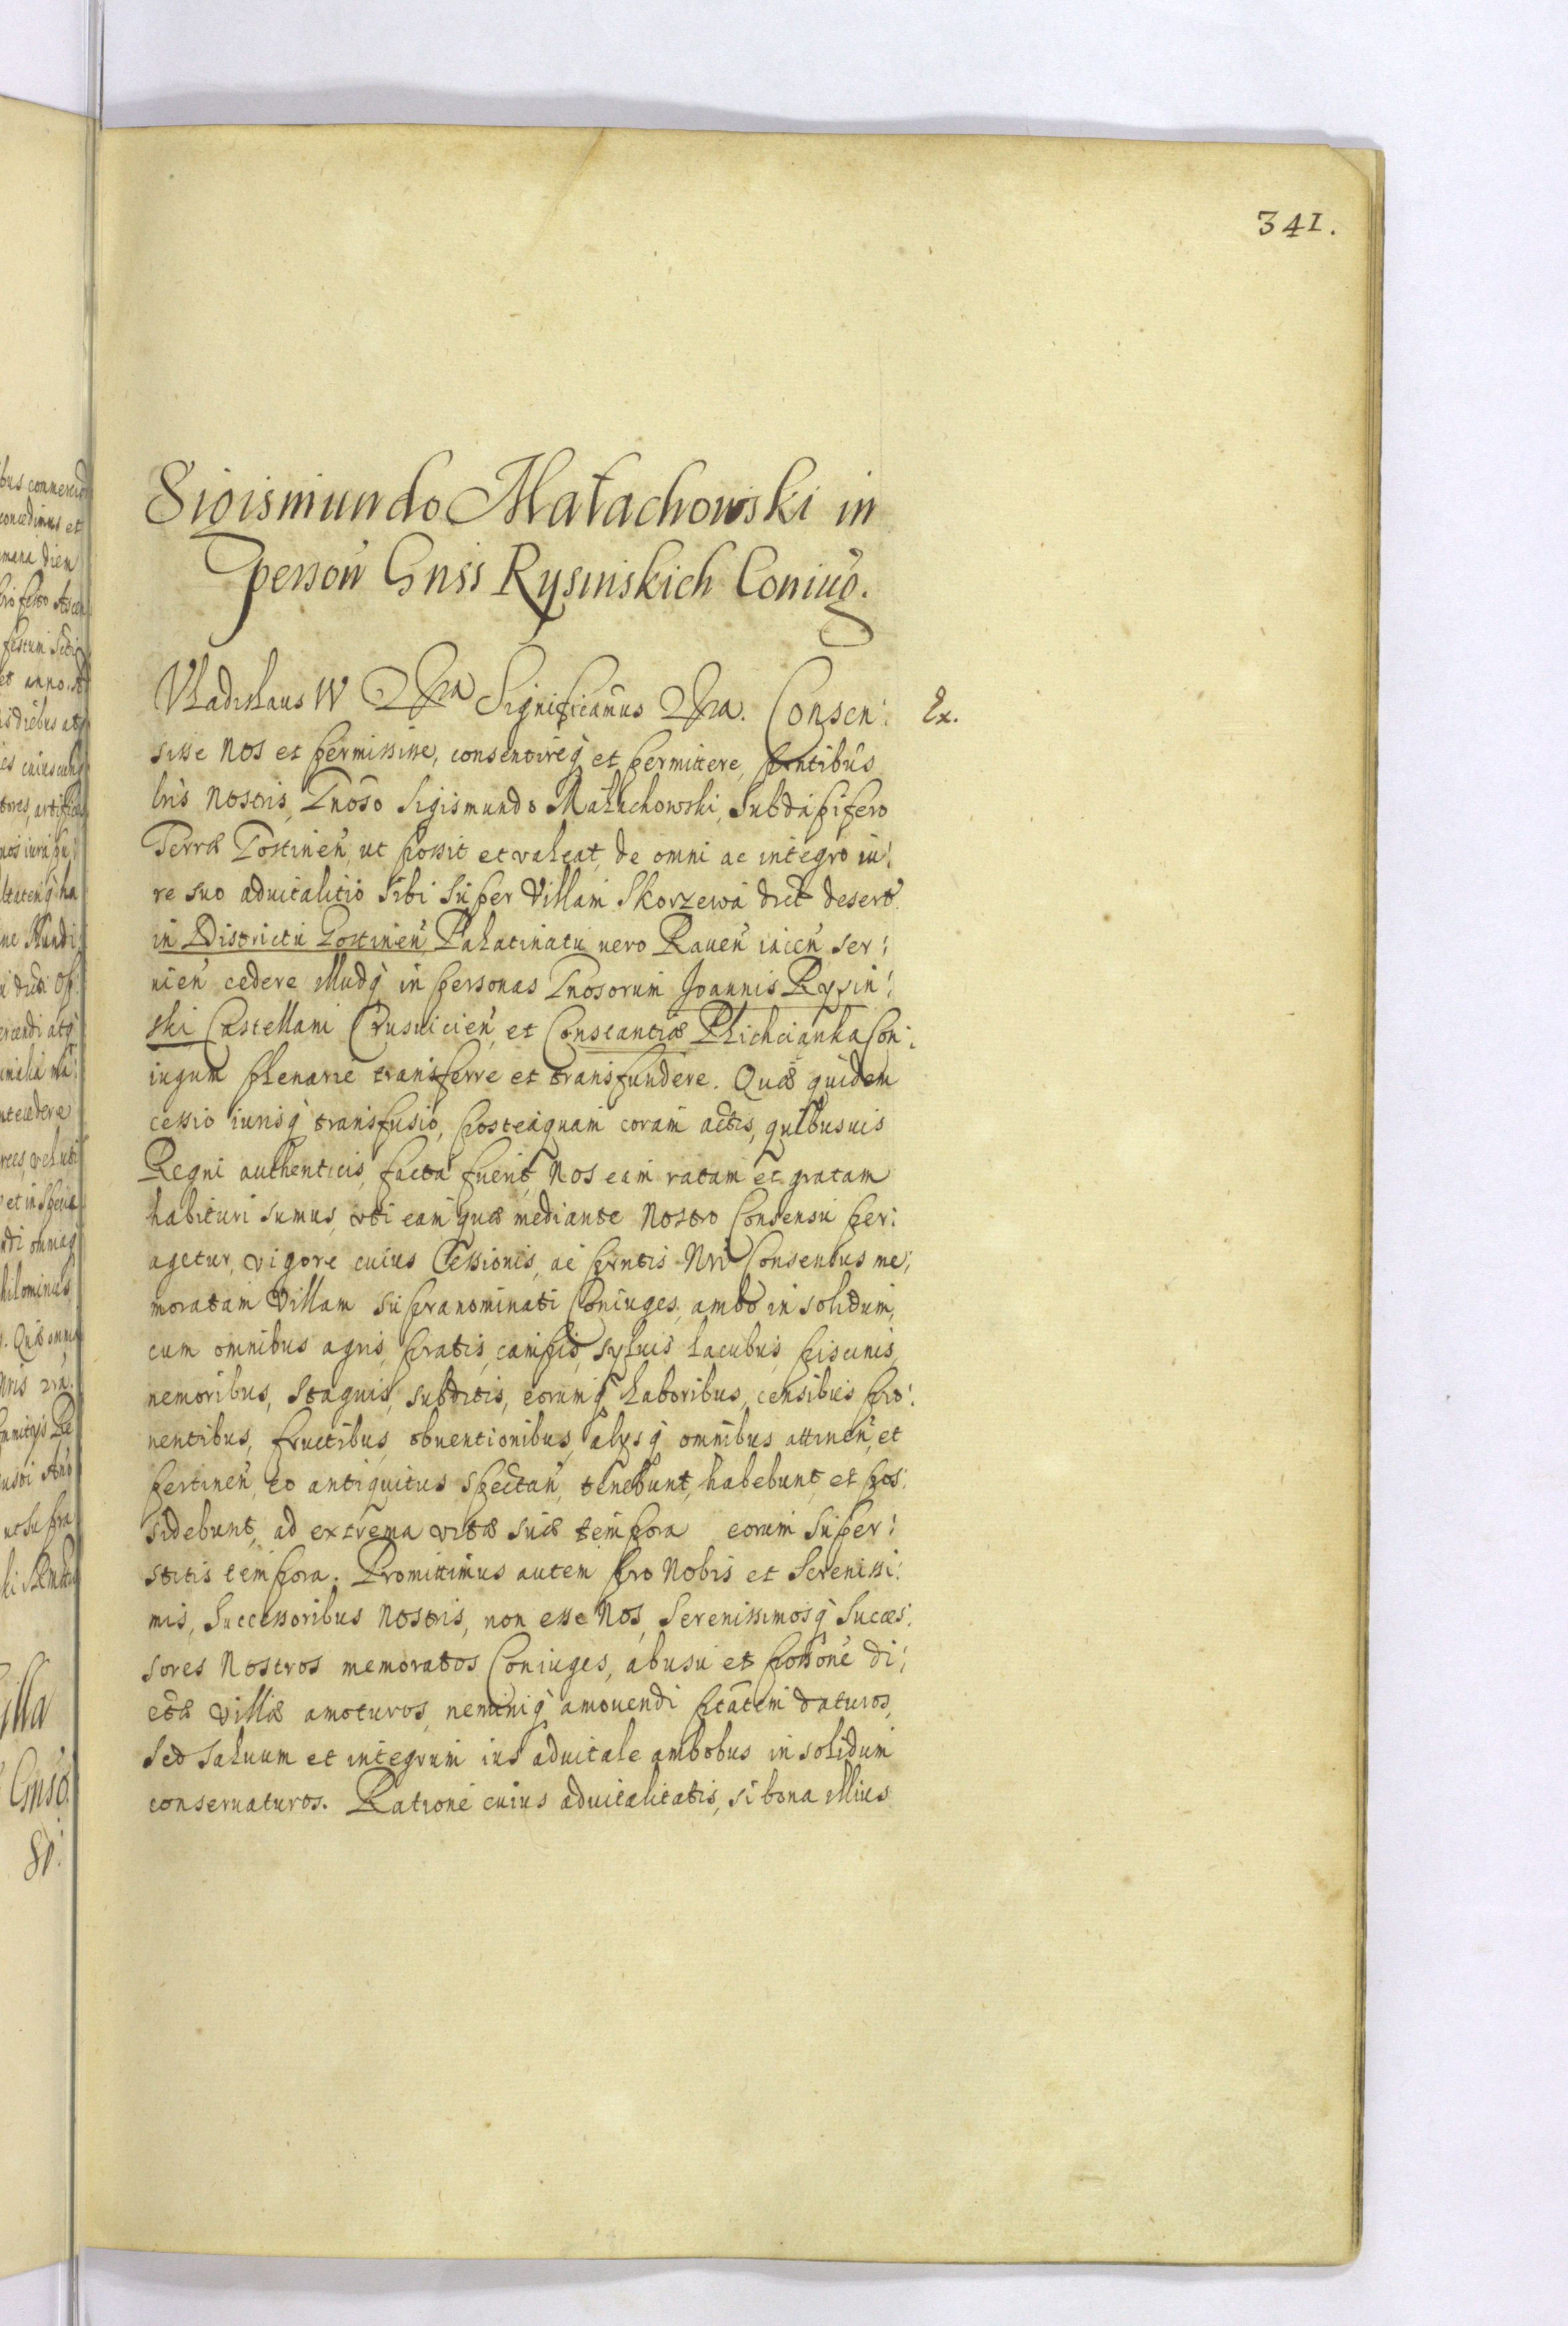 341.
Sigismundo Małachowski in
person̄ Gnss Rysinskich Coniug̃.
Vladislaus IV &ra Significamus &ra. Consen: Ex.
sisse Nos et permisisse, consentireq̃ et permittere, pr̃ntibus
lr̃is Nostris, Gnoso Sigismundo Małachowski, Subdapifero
Terræ Gostinen̄, ut possit et valeat, de omni ac integro iu:
re suo aduitalitio sibi super Villam Skorzewa dict desert
in Districtu Gostinen̄, Palatinatu vero Rauen̄ iacen̄ ser:
uien̄ cedere illudq̃ in personas Gnosorum Joannis Rysin:
ski Castellani Crusuicien̄, et Constantiæ Plichcianka Con:
iugum plenarie transferre et transfundere. Quæ quidem
cessio iurisq̃ transfusio, posteaquam coram actis, quibusuis
Regni authenticis, facta fuerit, Nos eam ratam et gratam
habituri sumus, uti eam quæ mediante Nostro Consensu per:
agetur, vigore cuius Cessionis, ac pr̃ntis Nr̃i Consensus me:
moratam Villam supranominati Coniuges, ambo in solidum,
cum omnibus agris, pratis, campis, syluis, lacubus, piscinis,
nemoribus, stagnis, subditis, eorumq̃ laboribus, censibus, pro:
uentibus, fructibus, obuentionibus, alysq̃ omnibus attinen̄, et
pertinen̄, eo antiquitus spectan̄, tenebunt, habebunt, et pos:
sidebunt, ad extrema vitæ suæ tempora eorum super:
stitis tempora. Promittimus autem pro Nobis et Serenissi:
mis, Successoribus Nostris, non esse Nos, Serenissimosq̃ Succes:
sores Nostros memoratos Coniuges, ab usu et possone di:
ctæ villæ amoturos, neminiq̃ amouendi ptãtem daturos,
sed saluum et integrum ius aduitale ambobus in solidum
conseruaturos. Ratione cuius aduitalitatis, si bona illius